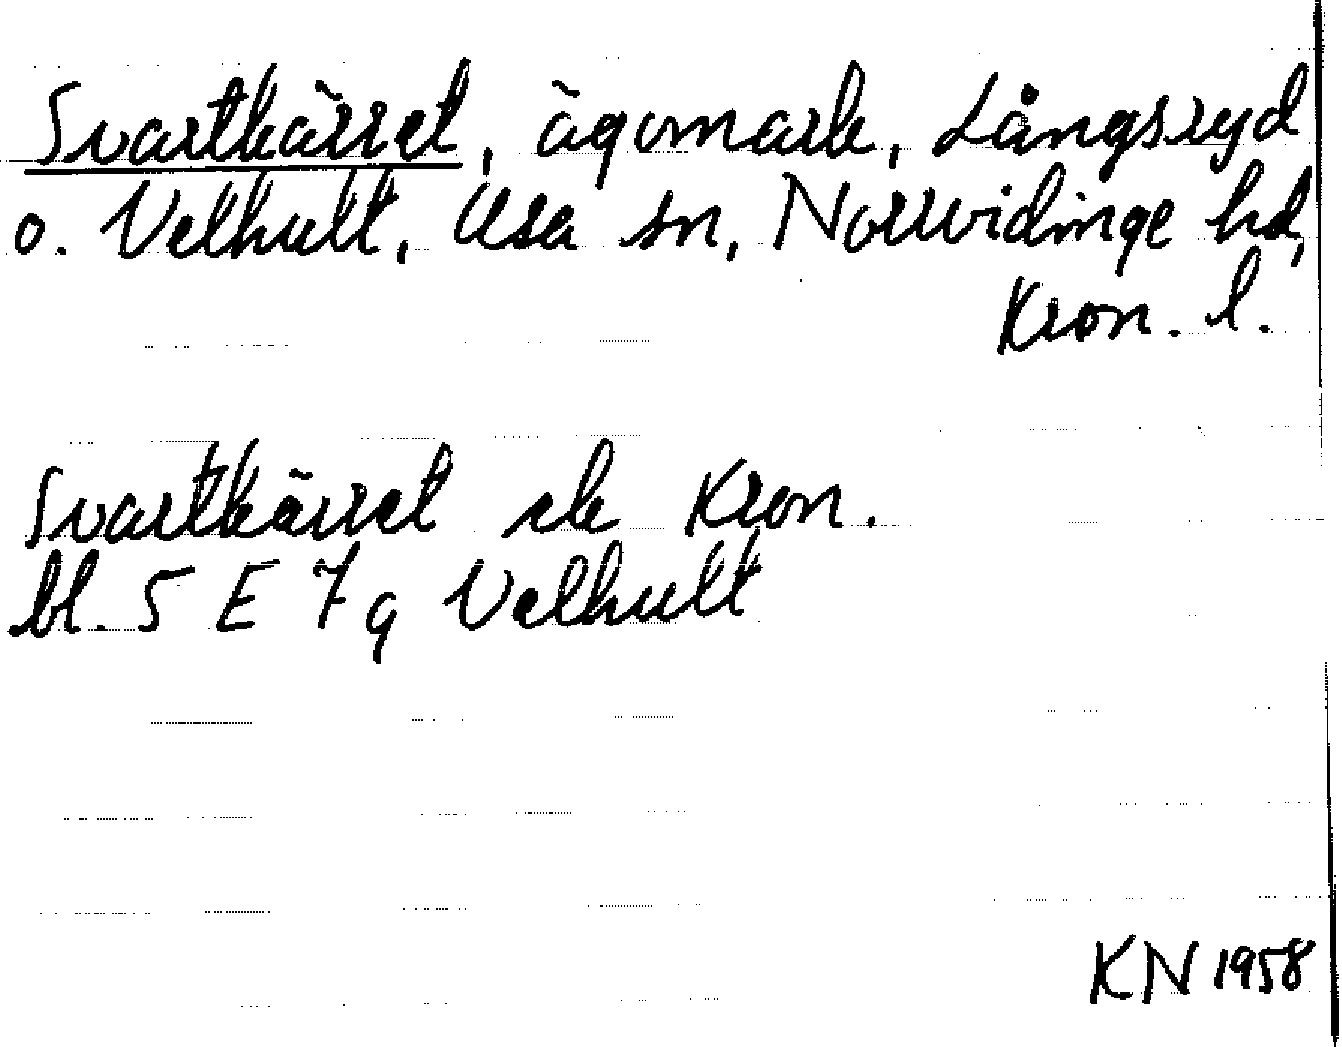 Svartkärret, ägomark, Långsryd
o. Velhult, Asa sn, Norrvidinge hd,
Kron. l.
Svartkärret ek Kron.
bl. 5 E 7 g Velhult
KN 1958